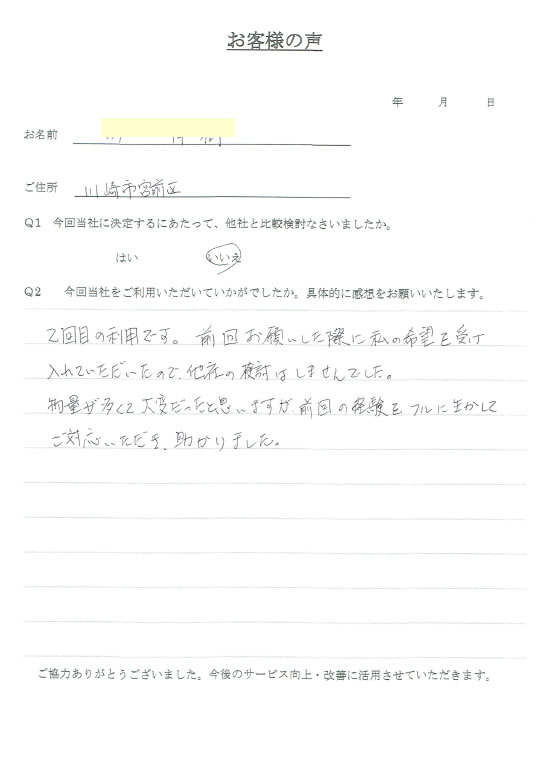 お客様の声
年 月 日
お名前
ご住所 川崎市宮前区
Q1 今回当社に決定するにあたって、他社と比較検討なさいましたか。
はい いいえ
Q2 今回当社をご利用いただいていかがでしたか。具体的に感想をお願いいたします。
2回目の利用です。前回お願いした際に私の希望を受け
入れていただいたので、他社の検討はしませんでした。
物量が多くて大変だったと思いますが、前回の経験をフルに生かして
ご対応いただき、助かりました。
ご協力ありがとうございました。今後のサービス向上・改善に活用させていただきます。